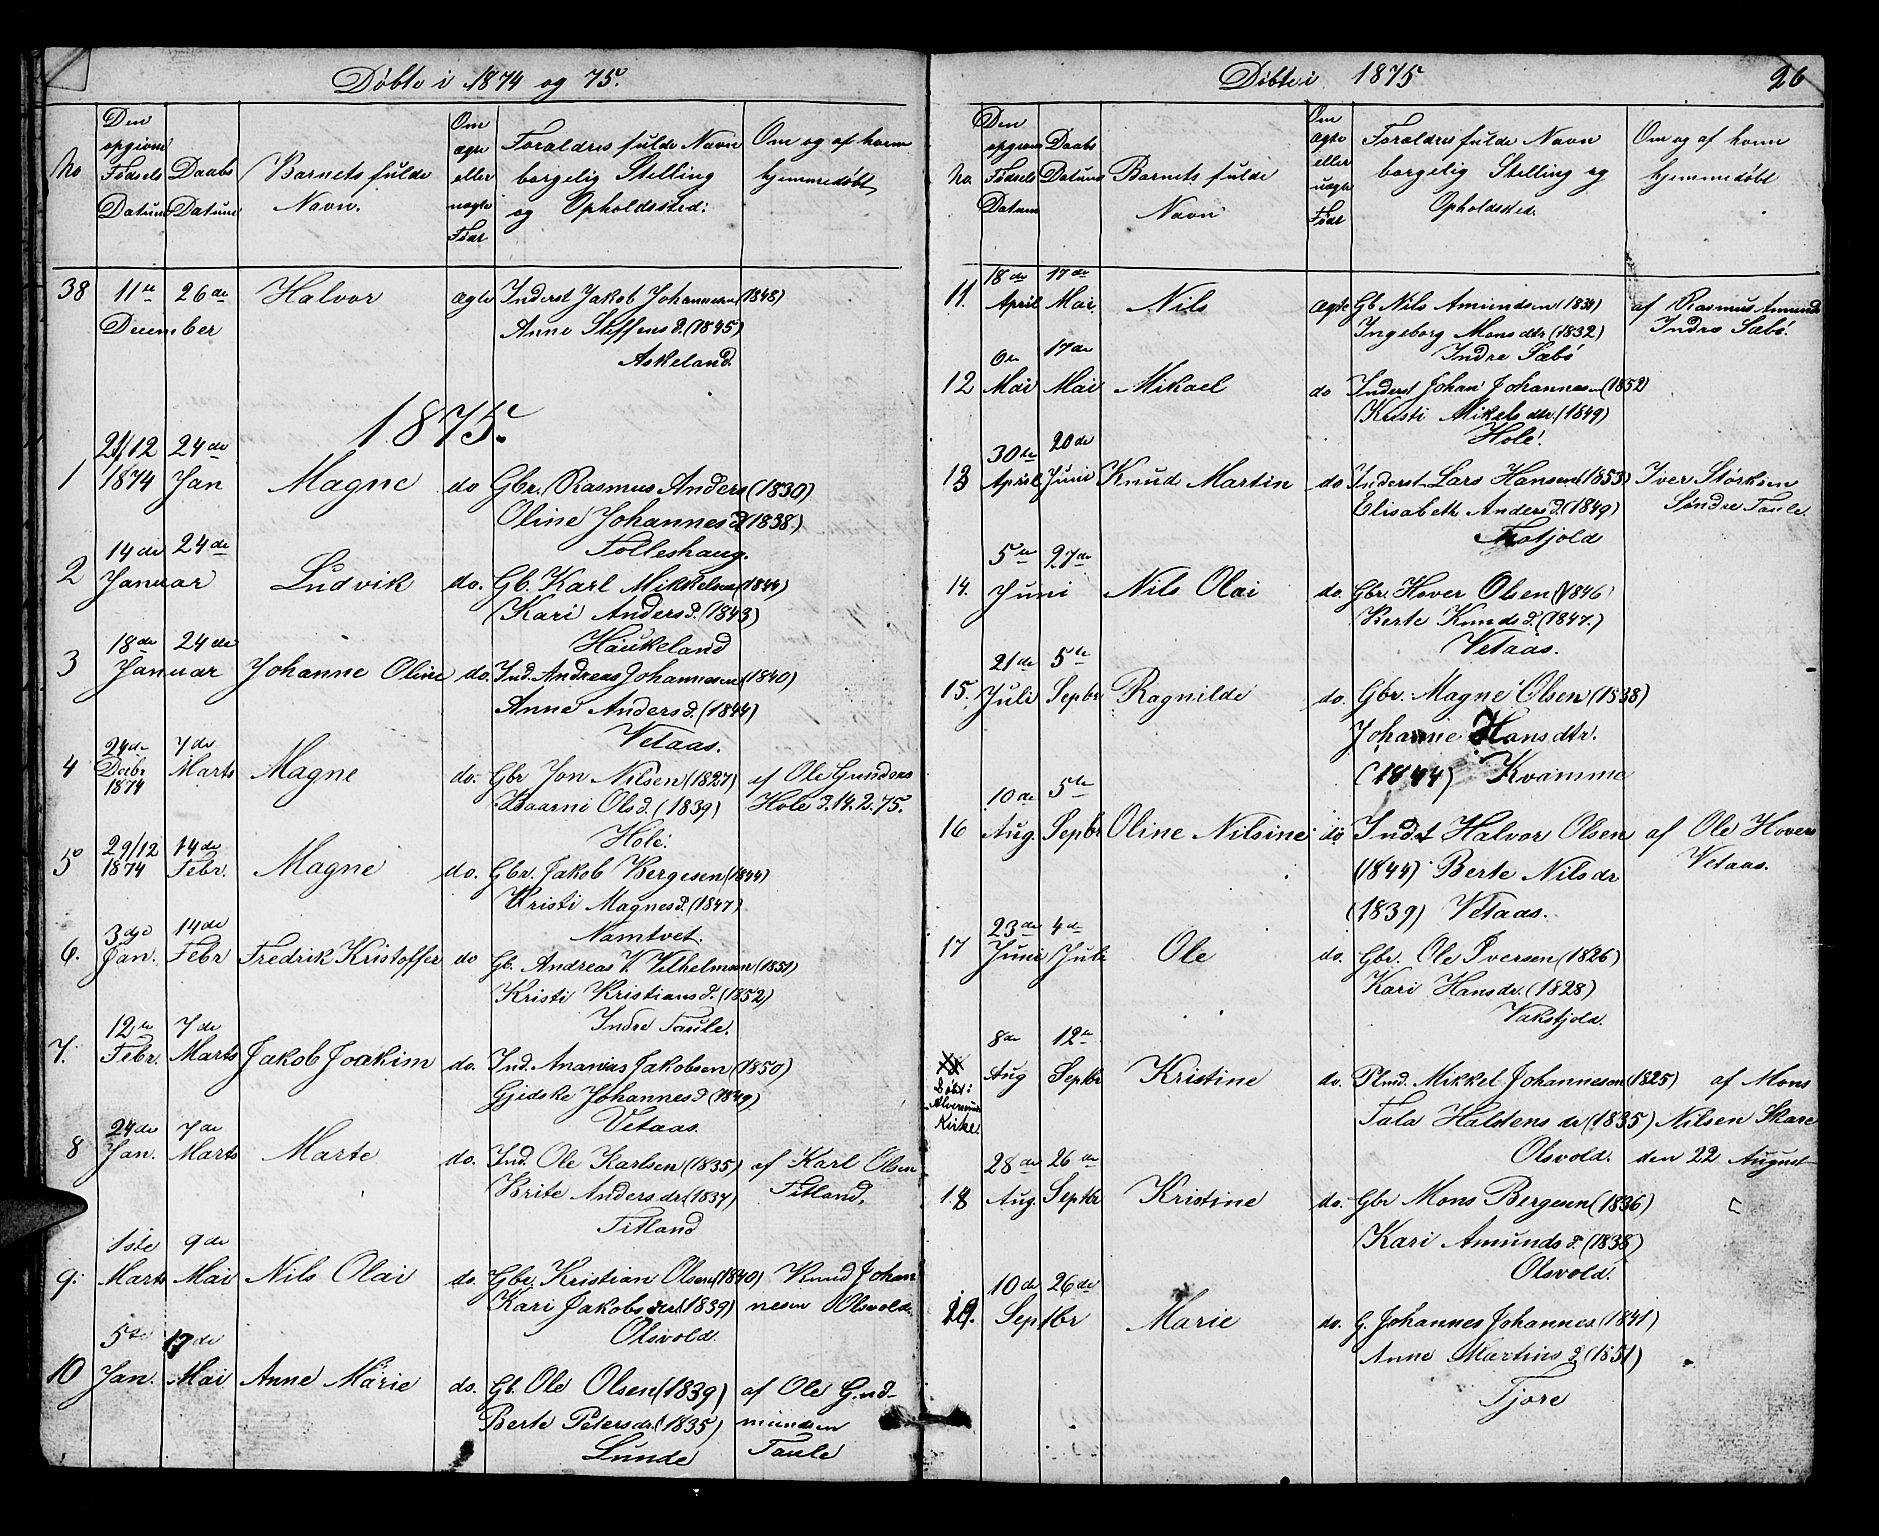 Døbte i 1874 og 75.
No
Den opgivne Fødsels Datum
Daabs Datum
Barnets fulde Navn.
Om ægte eller uægte Født
Forældres fulde Navn borgelig Stilling og Opholdssted:
Om og af hvem hjemmedøbt
38 11te 26de Halvor ægte Inderst Jakob Johannesen (1848)
December Anne Steffens d. (1845)
Askeland.
1875.
21/12 24de
1 1874 Jan Magne do Gbr. Rasmus Anders (1830)
Oline Johannes d (1838.)
Tolleshaug.
14de 24de
2 Januar Ludvik do. Gb. Karl Mikkelsen (1844)
Kari Anders d. (1843)
Haukeland
18de 24de
3 Januar Johanne Oline do. Ind. Andreas Johannesen (1840)
Anne Anders d. (1844)
Vetaas.
24de 7de
4 Decbr Marts Magne do. Gbr Jon Nilsen (1827) af Ole Gunders
1874 Baarni Ols d. (1839) Hole d. 14.2.75.
Hole.
29/12 14de
5 1874 Febr. Magne do. Gbr. Jakob Bergesen (1844)
Kristi Magnes d. (1847)
Namtvet.
3die 14de
6. Jan. Febr Fredrik Kristoffer do Gb. Andreas V. Vilhelmsen (1851)
Kristi Kristians d. (1852)
Indre Taule.
12te 7de
7. Febr. Marts Jakob Joakim do. Ind. Ananias Jakobsen (1850)
Gjedske Johannes d (1849)
Vetaas.
24de 7de
8 Jan. Marts Marte do. Ind. Ole Karlsen (1835) af Karl Olsen
Brite Anders dr. (1837) Titland,
Titland
1ste 9de
9. Marts Mai Nils Olai do. Gbr. Kristian Olsen (1840) Knud Johan
Kari Jakobs dr. (1839) nesen Olsvold.
Olsvold.
5te 17de
10 Jan. Mai Anne Marie do. Gb. Ole Olsen (1839) af Ole Gud-
Berte Peters dr. (1835) mundsen
Lunde Taule
Døbte i 1875 26
No.
Den opgivne Fødsels Datum
Daabs Datum
Barnets fulde Navn
Om ægte eller uægte Født
Forældres fulde Navn borgelig Stilling og Opholdsted.
Om og af hvem hjemmedøbt
18de 17de
11. April Mai. Nils ægte Gb Nils Amundsen (1834) af Rasmus Amunds
Ingeborg Mons dtr. (1832) Indre Sæbø.
Indre Sæbø
17de
12 Mai Mai Mikael do Inderst Johan Johannesen (1852)
Kristi Mikels dtr. (1849)
Hole.
30te 20de
13 April Juni Knud Martin do Inderst Lars Hansen (1853) Iver Størksen
Elisabeth Anders d. (1849) Søndre Taule
5te 27de
14. Juni Nils Olai do. Gbr. Hover Olsen (1846)
Berte Knuds d. (1847.)
Vetaas.
21de 5te
15. Juli Sepbr Ragnilde do. Gbr. Magne Olsen (1838)
Johanne Hans dtr.
(1844) Kvamme
10de 5te
16 Aug. Sepbr Oline Nilsine do Indst Halvor Olsen af Ole Hovers
(1844) Berte Nils dr Vetaas.
(1839) Vetaas.
23de 4de
17 Juni Juli Ole do. Gbr. Ole Iversen (1826)
Kari Hans dr. (1828)
Vakstjold.
8de 12te
Døbt i Aug Septbr Kristine do. Plmd. Mikkel Johannesen (1825) af Mons
Alversund Kirke. Tala Halstens dr (1835) Nilsen Skare
Olsvold. den 22 August
28de 26de
18 Aug. Septbr Kristine do. Gbr Mons Bergesen (1836)
Kari Amunds d. (1838)
Olsvold.
10de 26de
19. Septbr Marie do. G. Johannes Johannes. (1841)
Anne Martins d (1851)
Tjore